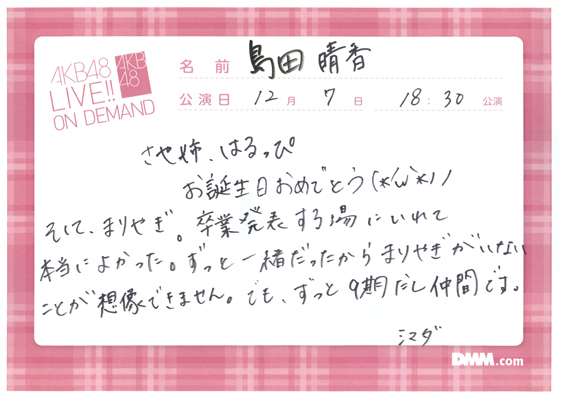 AKB48
LIVE!!
ON DEMAND
AKB
48
名前 島田晴香
公演日 12月7日 18:30公演
さや姉、はるっぴ
お誕生日おめでとう(*'ω'*)ノ
そして、まりやぎ。卒業発表する場にいれて
本当によかった。ずっと一緒だったからまりやぎがいない
ことが想像できません。でも、ずっと9期だし仲間です。
シマダ
DMM.com